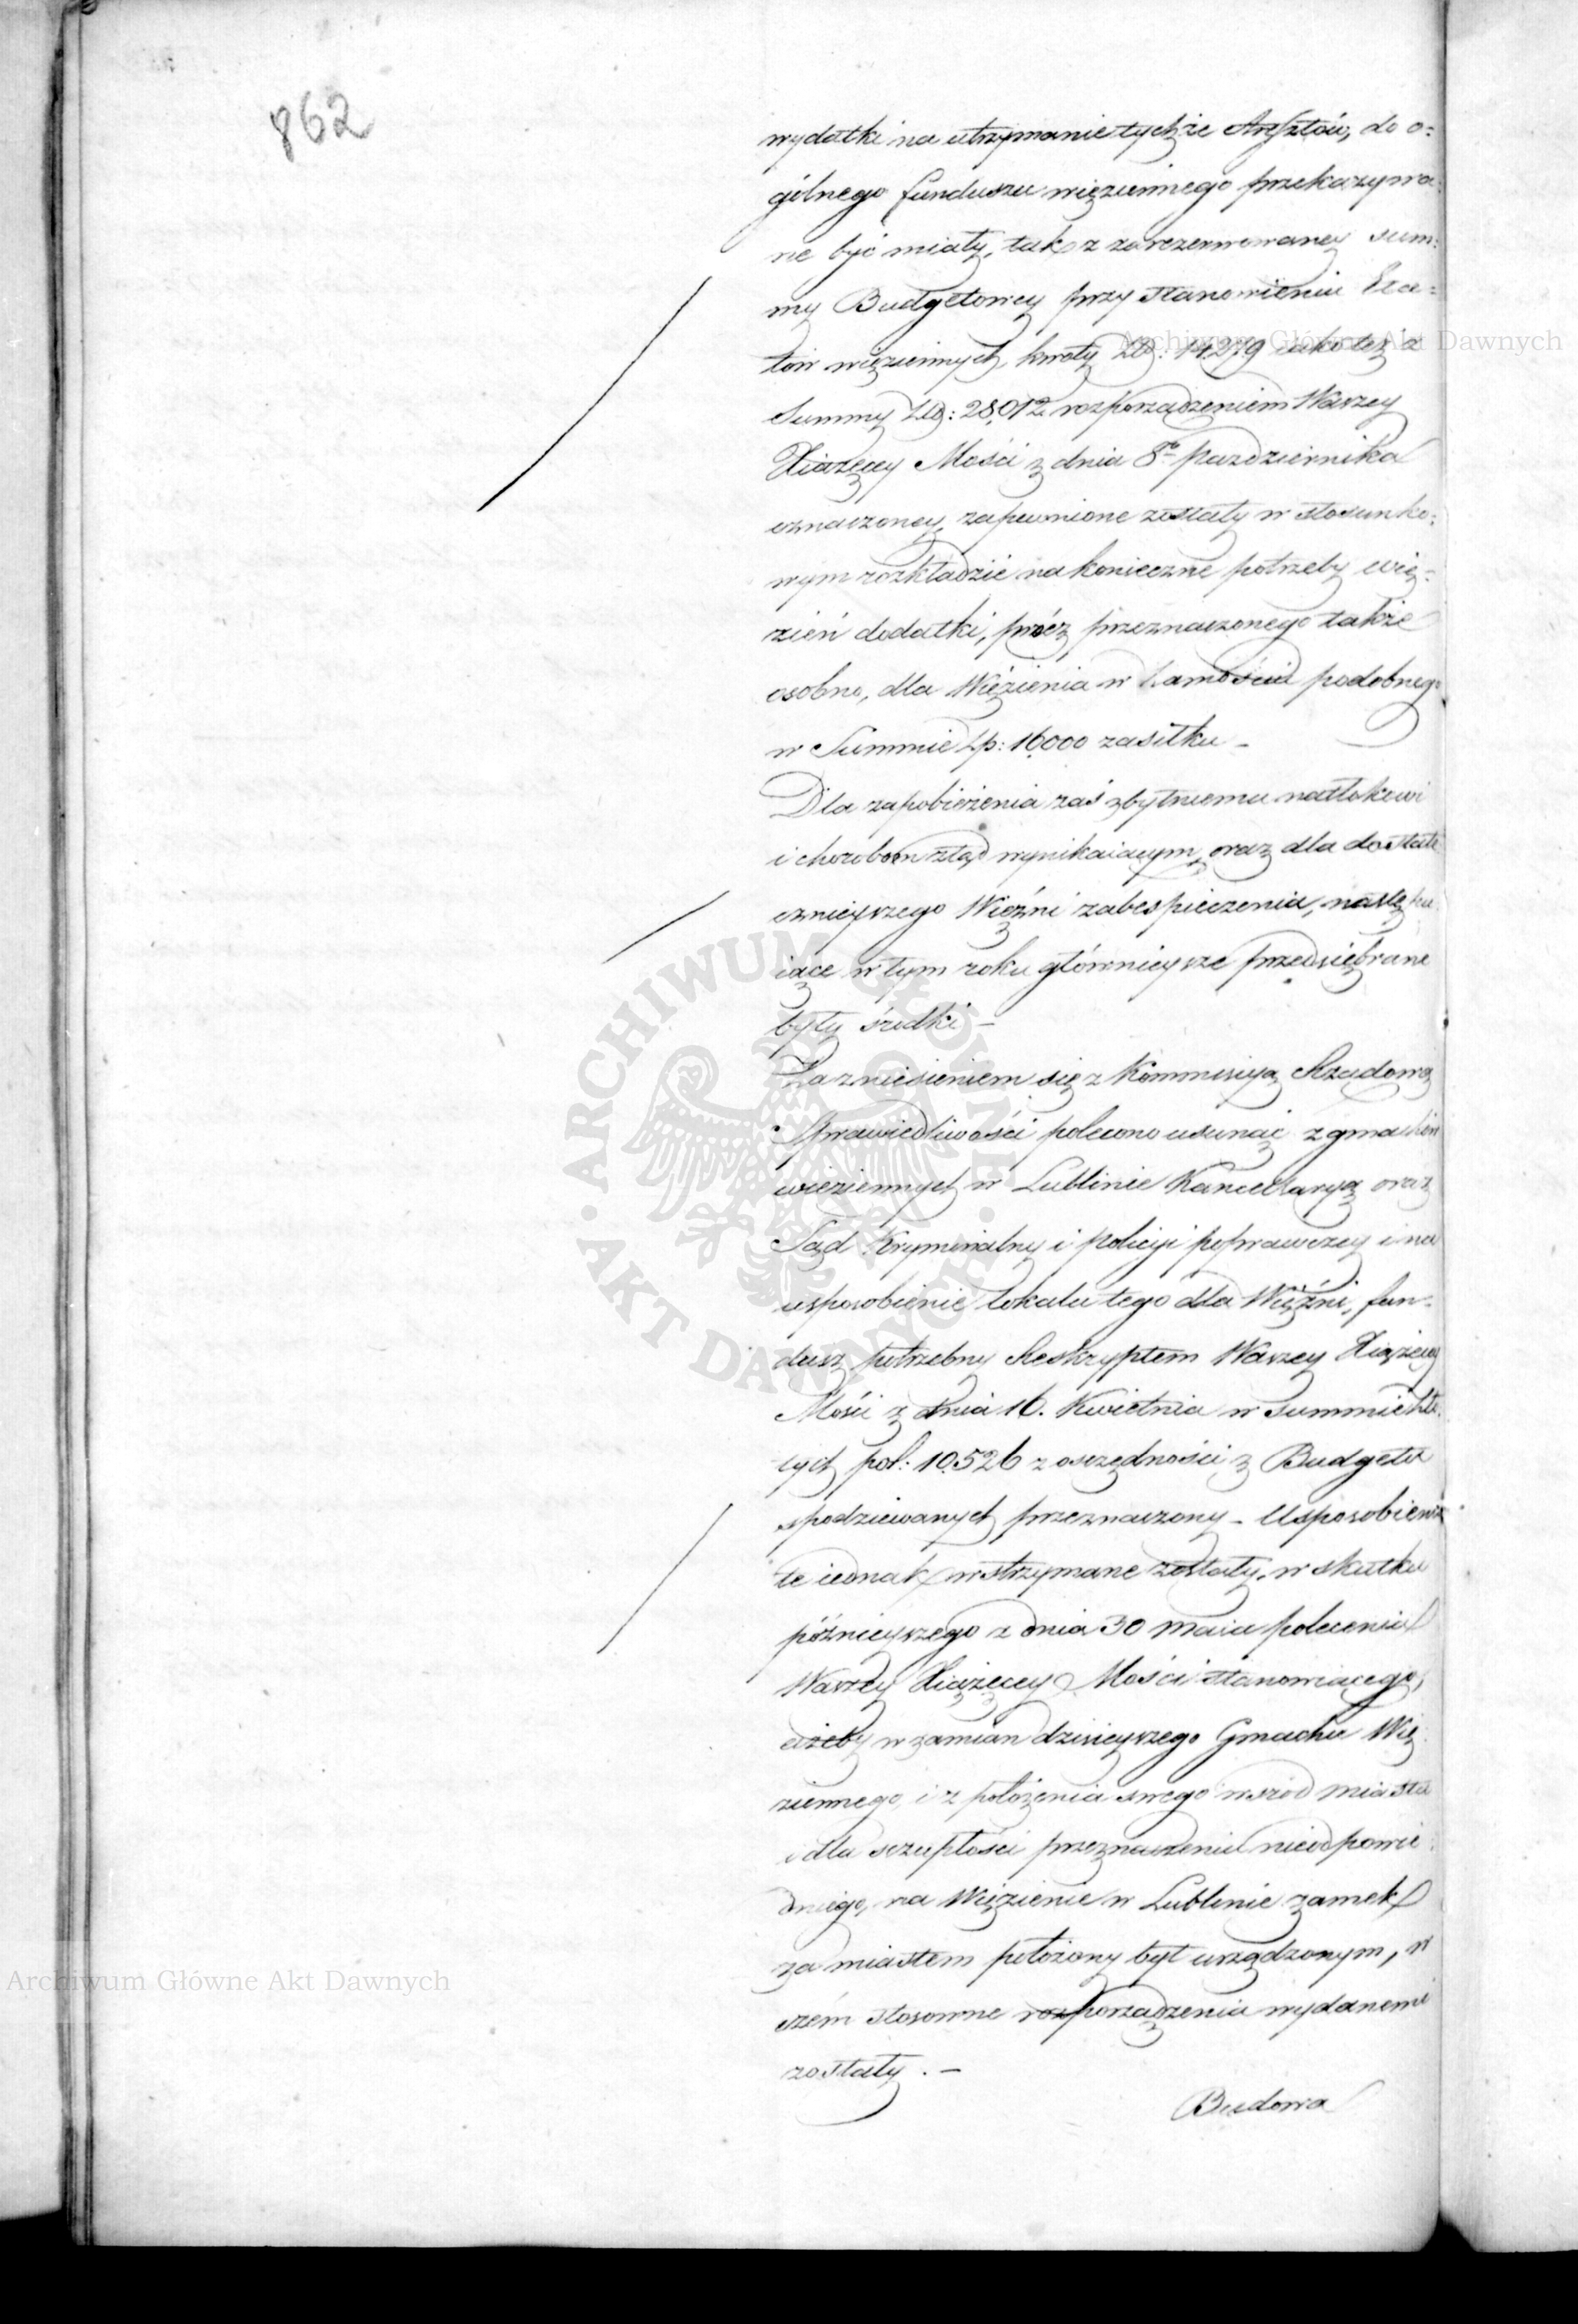 862
wydatki na utrzymanie tychże Aresztów, do o=
gólnego funduszu więziennego przekazywa=
ne być miały, tak z zarezerwowaney sum=
my Budgetowey przy stanowieniu Eta=
tów więziennych, kwoty Złp: 14,279 iako też z
Summy Złp: 28,012 rozporządzeniem Waszey
Xiążęcey Mości z dnia 8go Pazdziernika
oznaczoney, zapewnione zostały w stosunko=
wym rozkładzie na konieczne potrzeby wię=
zień dodatki, prócz przeznaczonego także
osobno, dla Więzienia w Zamościu podobnego
w Summie Zp: 16,000 zasiłku –
Dla zapobieżenia zaś zbytniemu natłokowi
i chorobom ztąd wynikaiącym, oraz dla dostate
cznieyszego Więźni zabespieczenia, następu
iące w tym roku głównieysze przedsiębrane
były środki –
Za zniesieniem się z Kommissyą Rządową
Sprawiedliwości polecono usunąć z gmachów
więziennych w Lublinie Kancellaryą oraz
Sąd Kryminalny i Policyi poprawczey i na
usposobienie lokalu tego dla Więźni, fun=
dusz potrzebny Reskryptem Waszey Xiążęcey
Mości z dnia 16. Kwietnia w Summie Zło
tych pol: 10,526 z oszczędności z Budgetu
spodziewanych przeznaczony – Usposobienia
te iednak wstrzymane zostały, w skutku
późnieyszego z dnia 30 Maia polecenia
Waszey Xiążęcey Mości stanowiącego,
ażeby w zamian dzisieyszego Gmachu Wię
ziennego, i z położenia swego wśród miasta
i dla szczupłości przeznaczeniu nieodpowie
dniego, na Więzienie w Lublinie zamek
za miastem położony był urządzonym, w
czém stosowne rozporządzenia wydanemi
zostały. –
Budowa
Archiwum Główne Akt Dawnych
Archiwum Główne Akt Dawnych
ARCHIWUM GŁÓWNE · AKT DAWNYCH ·